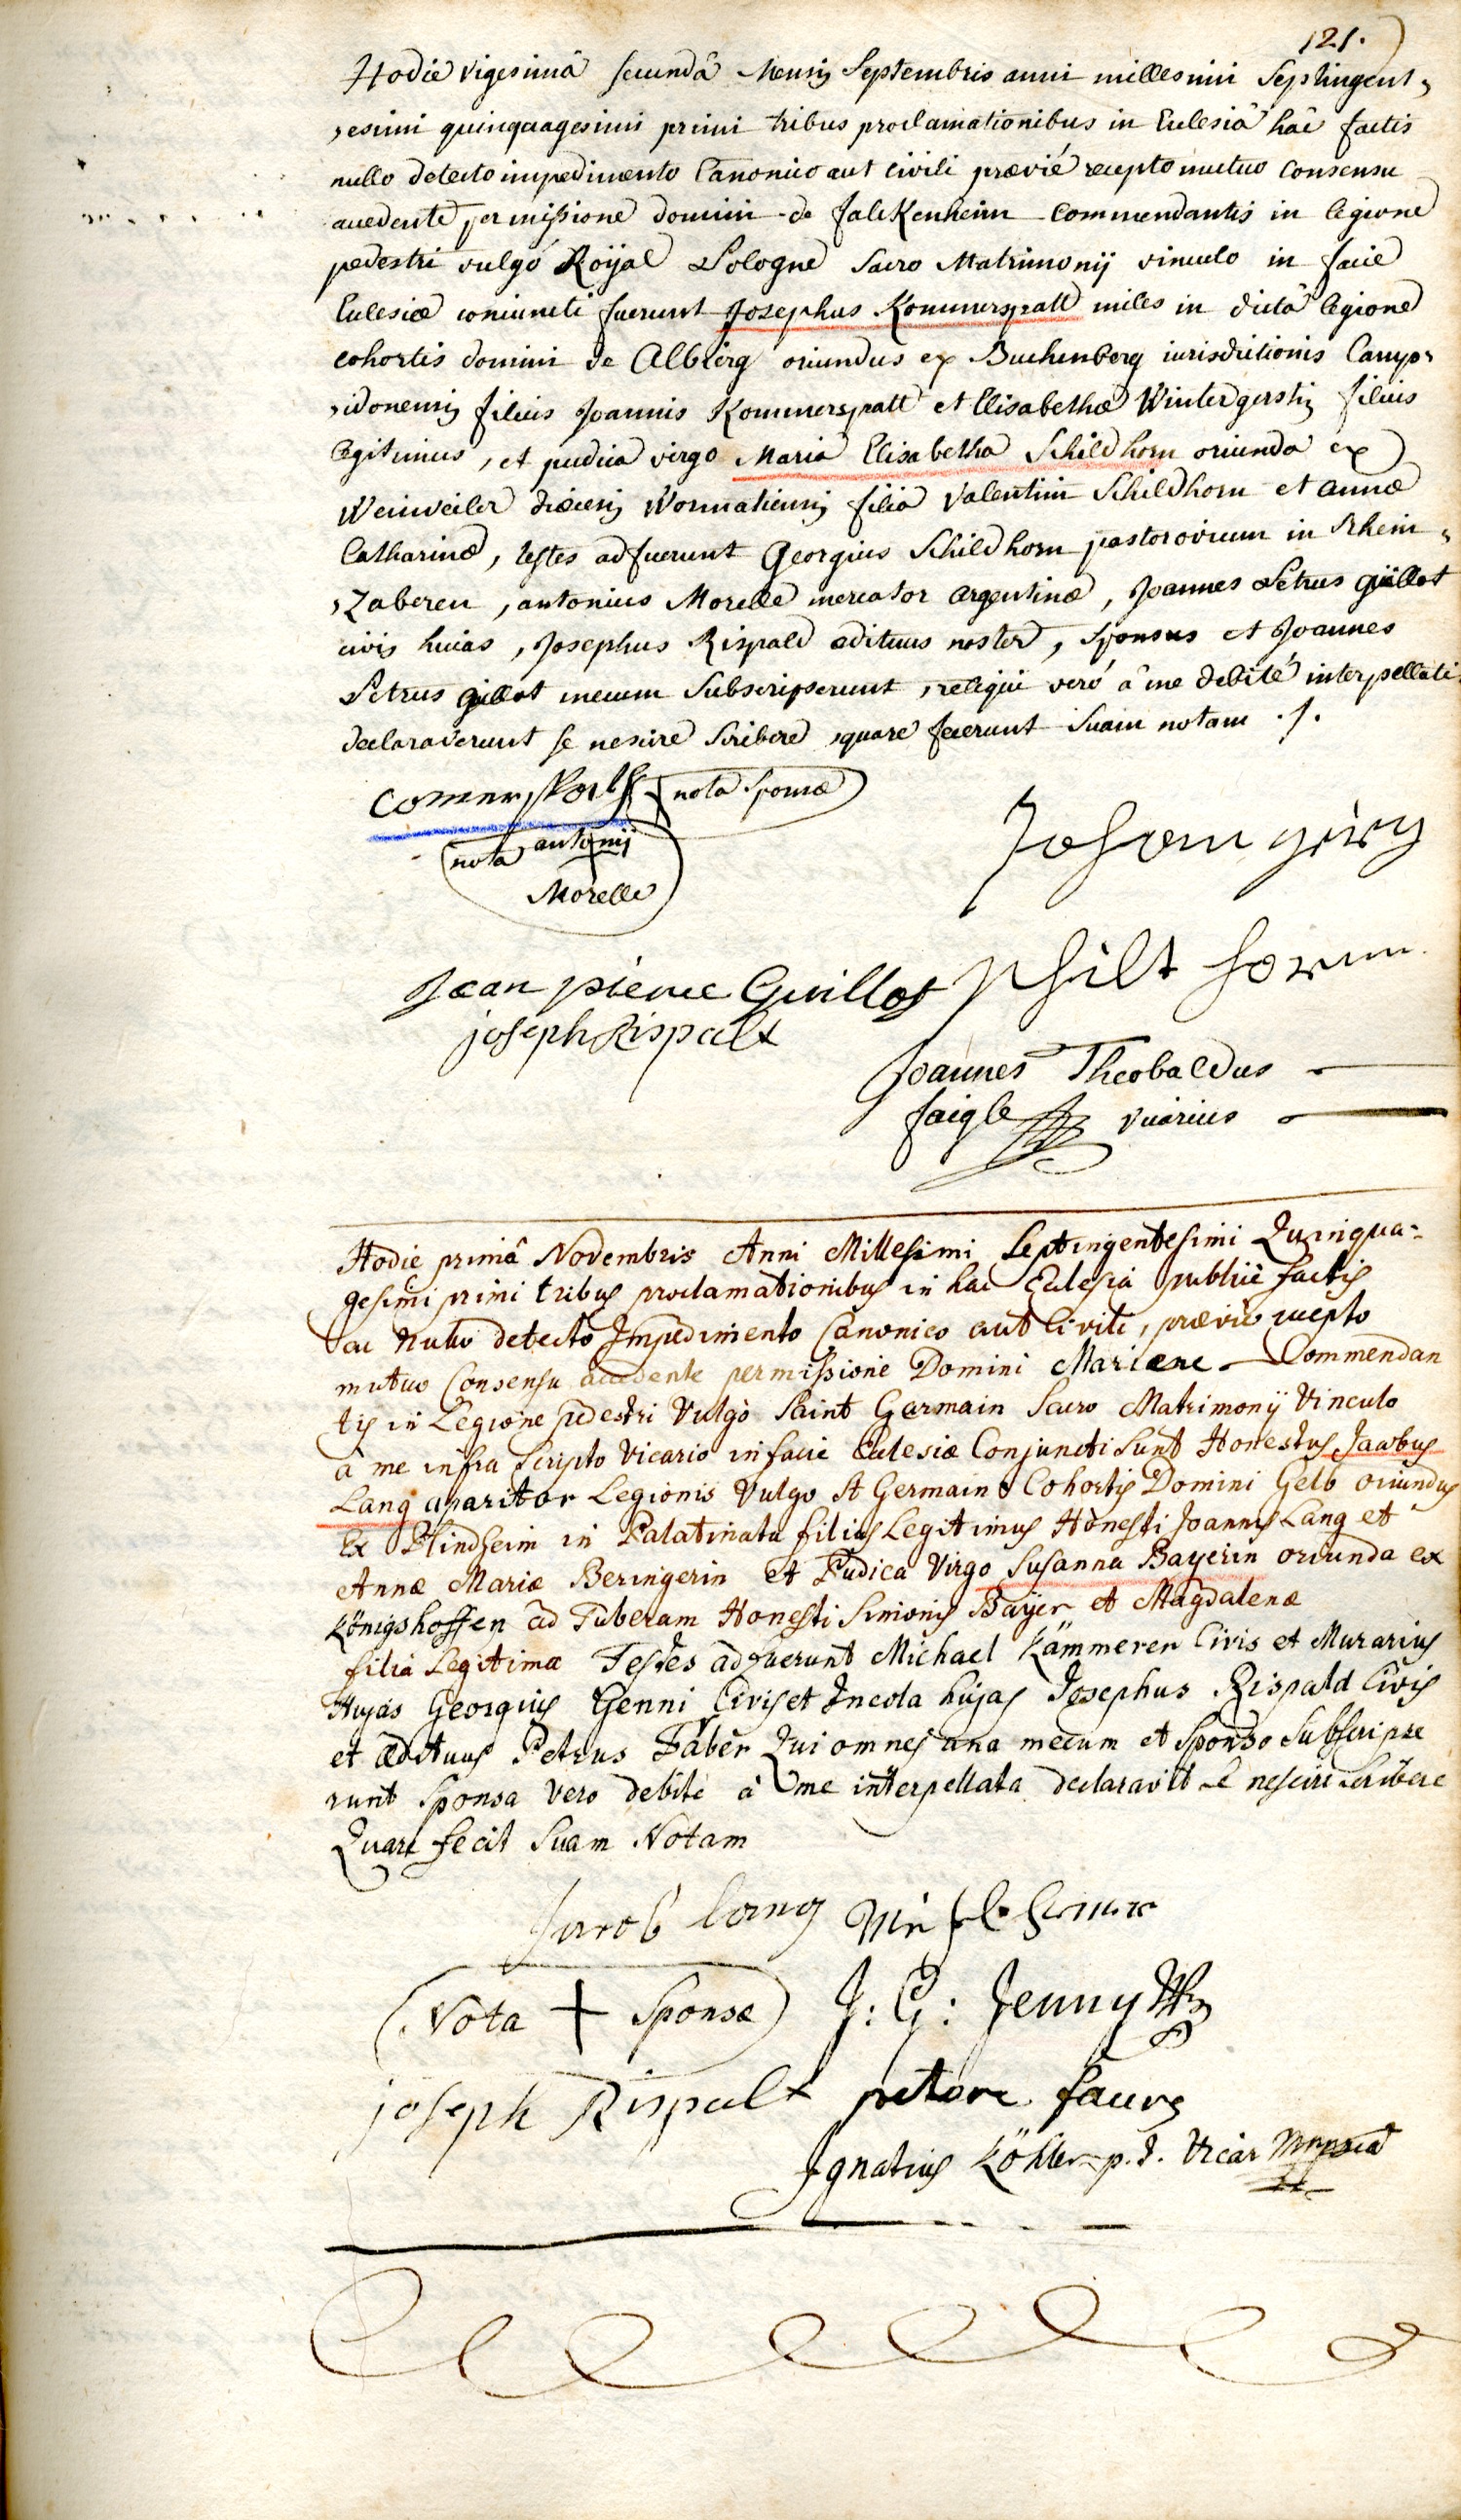 121.
Hodie vigesimâ secundâ Mensis Septembris anni millesimi Septingent,
,esimi quinquagesimi primi tribus proclamationibus in Eclesiâ hâc factis
nullo detecto impedimento Canonico aut civili prævié recepto mutuo consensu
accedente permissione domini de falckenheim commendantis in legione
pedestri vulgó Roÿal Pologne Sacro Matrimonij vinculo in facie
Eclesiæ coniuncti fuerunt Josephus Kommerspatt miles in dictâ legione
cohortis domini de Albierg oriundus ex Buchenberg iurisdictionis Camp,
,idonensis filius Joannis Kommerspatt et Elisabethæ Wintergerstin filius
legitimus, et pudica virgo Maria Elisabetha Schildhorn oriunda ex
Weinweiler diæcesis Wormatiensis filia Valentini Schildhorn et annæ
Catharinæ, testes adfuerunt Georgius Schildhorn pastor ovium in Rhein,
,Zaberen, antonius Morelle mercator argentinæ, Joannes Petrus güllot
civis huias, Josephus Rispald ædituus noster, sponsus et Joannes
Petrus gillot mecum Subscripserunt, reliqui veró â me debité interpellati
declaraverunt se nescire scribere, quare fecerunt Suam notam ./.
comerspalt nota sponsæ
nota antonij
Morelle
Johann görg
Jean pierre Guillot Schilt horn
joseph Rispalt
Joannes Theobaldus
faigle vicarius
Hodie primâ Novembris Anni Millesimi Septingentesimi Quinqua=
gesimi primi tribus proclamationibus in hac Eclesiâ publicè factis
ac nullo detecto Impedimento Canonico aut Civili, prævio recepto
mutuo Consensu accedente permissione Domini Mariane Commendan
tis in Legione pedestri Vulgò Saint Germain Sacro Matrimonÿ Vinculo
à me infra Scripto Vicario in facie Eclesiæ Conjuncti Sunt Honestus Jacobus
Lang aparitor Legionis Vulgo St Germain Cohortis Domini Gelb oriundus
Ex Flindheim in Palatinatu filius Legitimus Honesti Joannis Lang et
Annæ Mariæ Beringerin et Pudica Virgo Susanna Bayerin oriunda ex
Königshoffen ad Tuberam Honesti Simonis Baÿer et Magdalenæ
filia Legitima Testes adfuerunt Michael Kämmerer Civis et Murarius
Hujas Georgius Genni Civis et Incola hujas Josephus Rispald Civis
et Ædituus Petrus Faber Qui omnes una mecum et Sponso Subscripse
runt Sponsa vero debite à me interpellata declaravit se nescire scribere
Quare fecit Suam Notam
Jacob lang
Nota + Sponsæ J: G: Jenny
joseph Rispalt petere faure
Ignatius Köhler p.t. Vicar